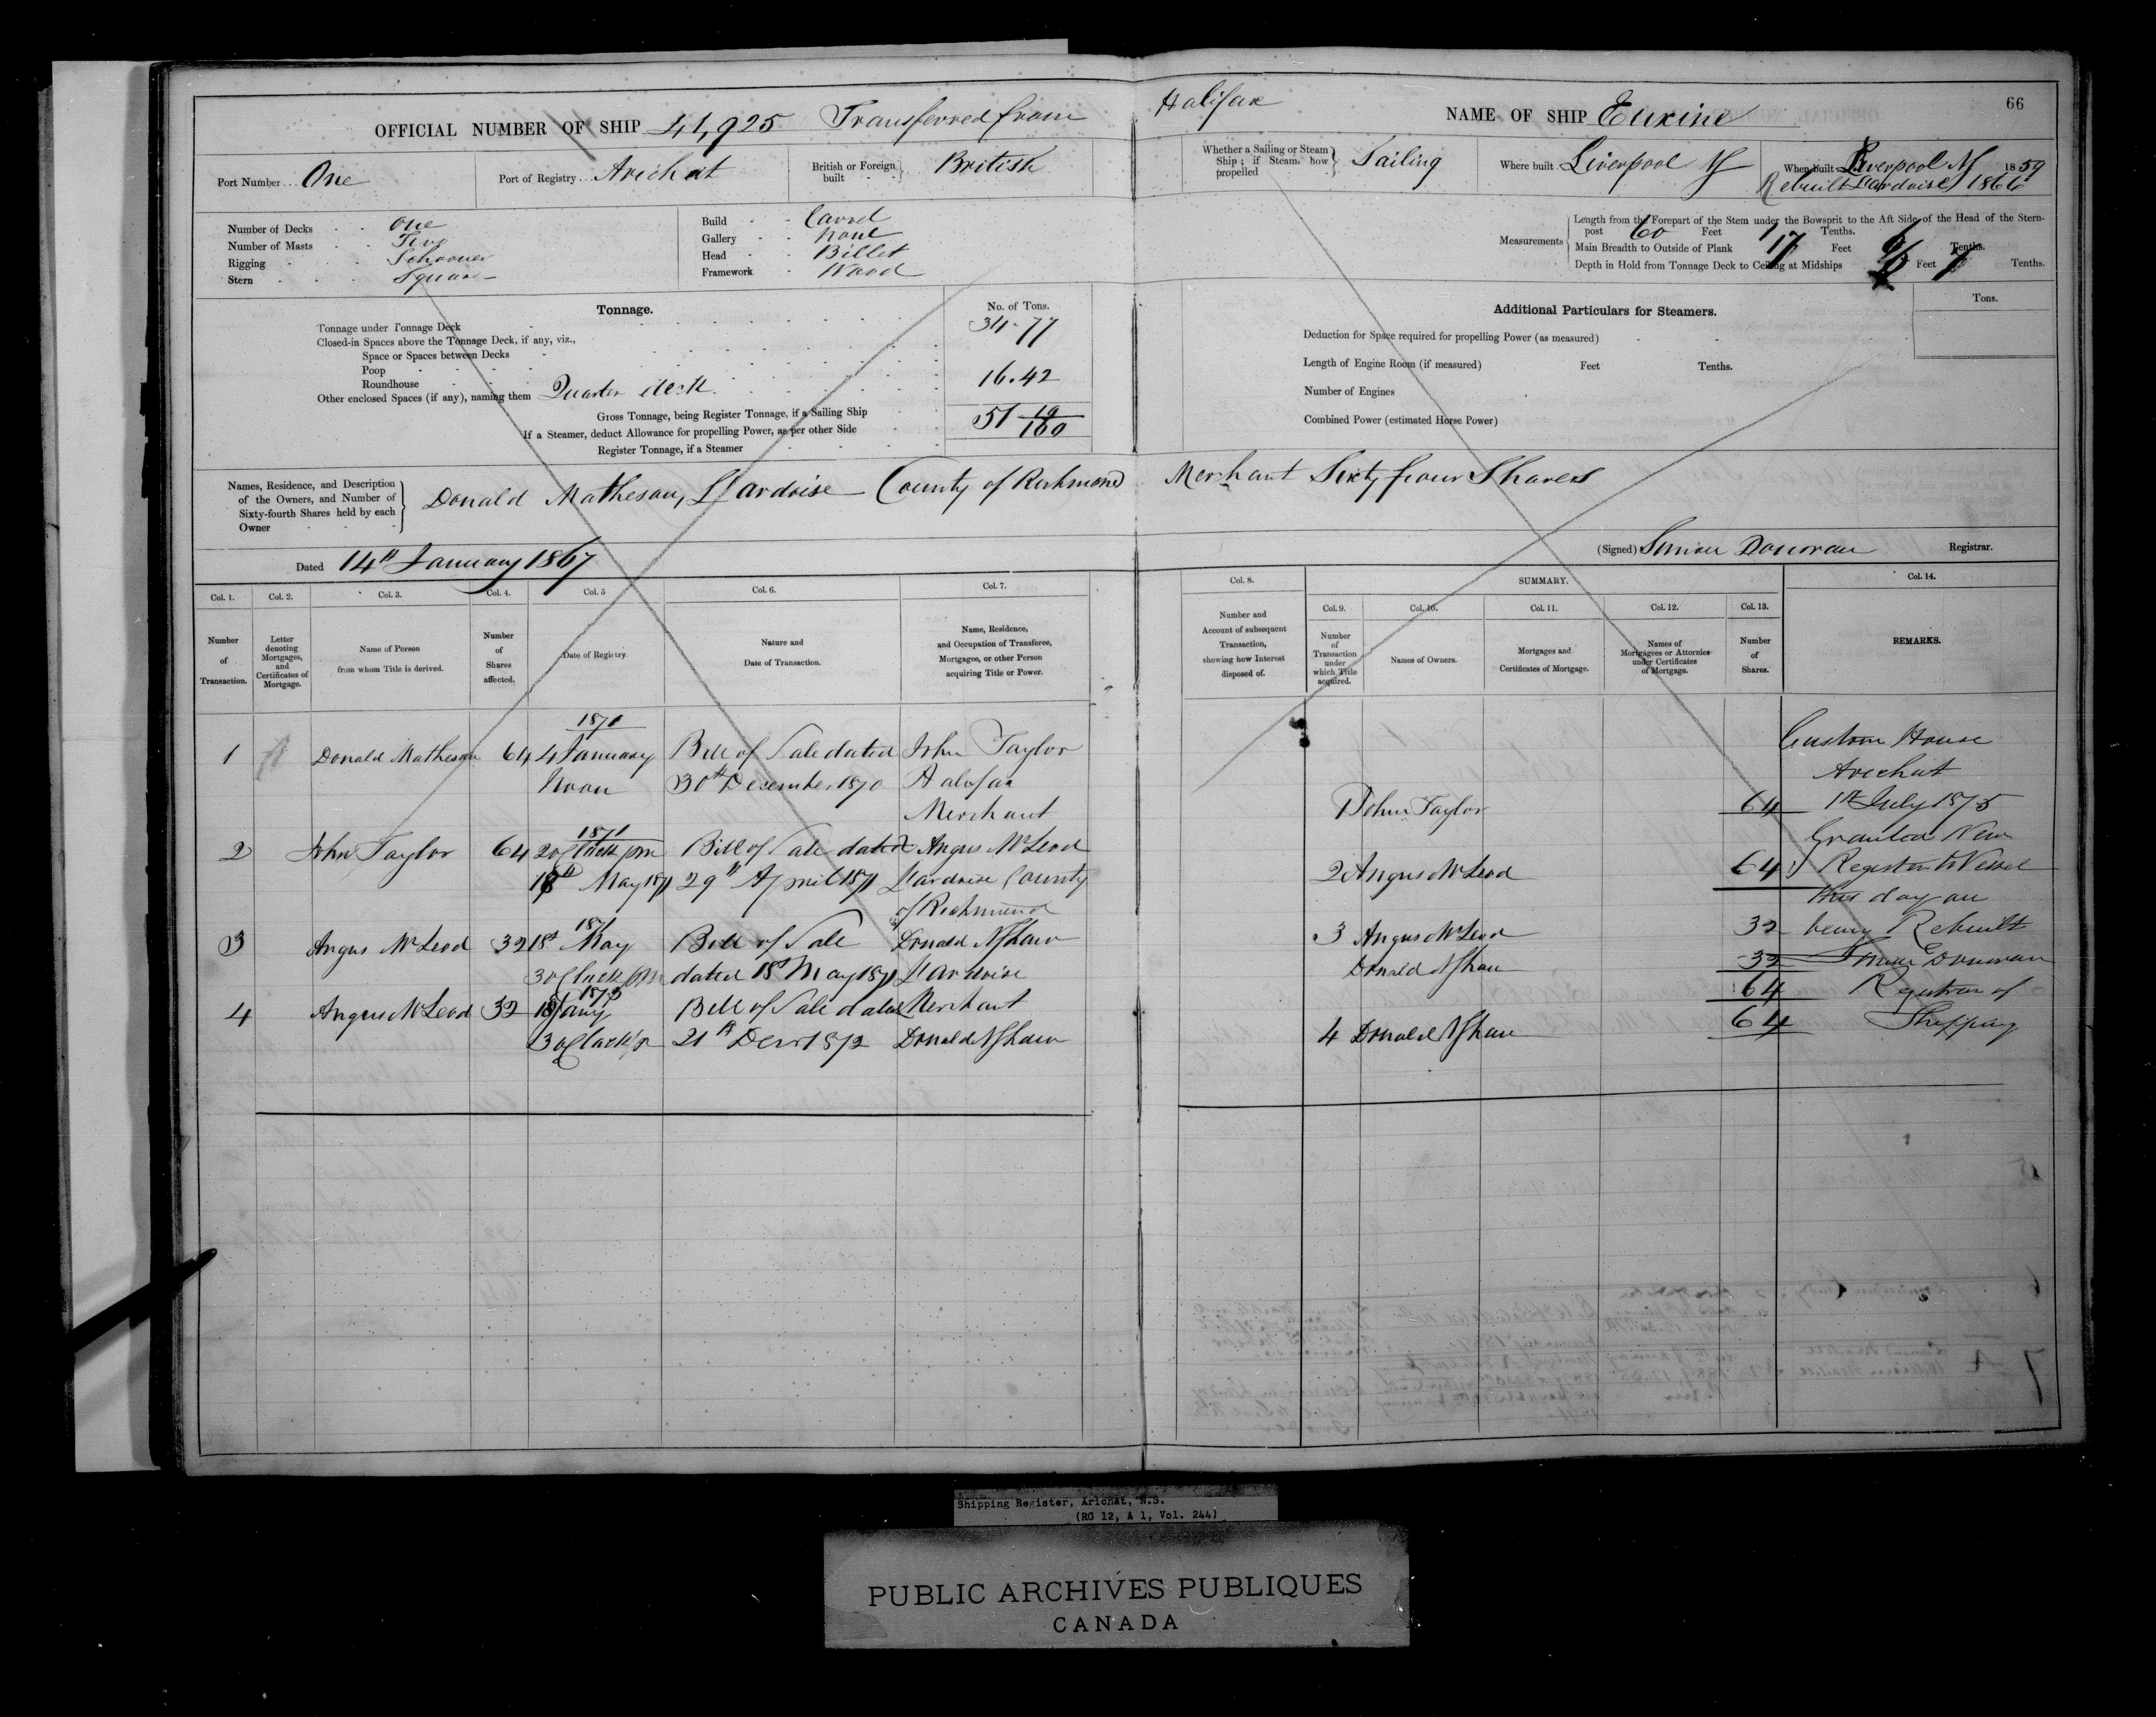 66
OFFICIAL NUMBER OF SHIP 41,925 Transferred from Halifax NAME OF SHIP Euxine
Port Number One Port of Registry Arichat British or Foreign built British
Whether a Sailing or Steam Ship; if Steam how propelled Sailing Where built Liverpool When built Liverpool 1859
Rebuilt Lardoise 1866
Number of Decks One
Number of Masts Two
Rigging Schooner
Stern Square
Build Carvel
Gallery None
Head Billet
Framework Wood
Measurements
Length from the Forepart of the Stem under the Bowsprit to the Aft Side of the Head of the Stern-
post 60 Feet Tenths.
Main Breadth to Outside of Plank 17 Feet Tenths.
Depth in Hold from Tonnage Deck to Ceiling at Midships Feet 7 Tenths.
Tonnage. No. of Tons.
Tonnage under Tonnage Deck 34.77
Closed-in Spaces above the Tonnage Deck, if any, viz.,
Space or Spaces between Decks
Poop
Roundhouse
Other enclosed Spaces (if any), naming them Quarter deck 16.42
Gross Tonnage, being Register Tonnage, if a Sailing Ship 51 19/100
If a Steamer, deduct Allowance for propelling Power, as per other Side
Register Tonnage, if a Steamer
Additional Particulars for Steamers. Tons.
Deduction for Space required for propelling Power (as measured)
Length of Engine Room (if measured) Feet Tenths.
Number of Engines
Combined Power (estimated Horse Power)
Names, Residence, and Description
of the Owners, and Number of
Sixty-fourth Shares held by each
Owner
Donald Matheson, L'ardoise County of Richmond Merchant Sixty four Shares
Dated 14th January 1867 (Signed) Simon Donovan Registrar.
Col. 1. Col. 2. Col. 3. Col. 4. Col. 5 Col. 6. Col. 7. Col. 8. SUMMARY. Col. 14.
Col. 9. Col. 10. Col. 11. Col. 12. Col. 13.
Number of Transaction.
Letter denoting Mortgages, and Certificates of Mortgage.
Name of Person from whom Title is derived.
Number of Shares affected.
Date of Registry.
Nature and Date of Transaction.
Name, Residence, and Occupation of Transferee, Mortgagee, or other Person acquiring Title or Power.
Number and Account of subsequent Transaction, showing how Interest disposed of.
Number of Transaction under which Title acquired.
Names of Owners.
Mortgages and Certificates of Mortgage.
Names of Mortgagees or Attornies under Certificates of Mortgage.
Number of Shares.
REMARKS.
1871
1 Donald Matheson 64 4 January Bill of Sale dated John Taylor
Noon 30th December 1870 Halifax
Merchant
1871
2 John Taylor 64 2 oClock pm Bill of Sale dated Angus McLeod
18th May 1871 29th April 1871 Lardoise County
of Richmond
1871
3 Angus McLeod 32 18th May Bill of Sale Donald N Shaw
3 oClock pm dated 18th May 1871 Lardoise
1873
4 Angus McLeod 32 Jany Bill of Sale dated Merchant
3 oClock 21st Decr 1872 Donald N Shaw
1 John Taylor 64
2 Angus McLeod 64
3 Angus McLeod 32
Donald N Shaw 32
64
4 Donald N Shaw 64
Custom House
Arichat
1st July 1875
Granted New
Register to Vessel
this day on
being Rebuilt
Simon Donovan
Registrar of
Shipping
Shipping Register, Arichat, N.S.
(RG 12, A 1, Vol. 244)
PUBLIC ARCHIVES PUBLIQUES
CANADA